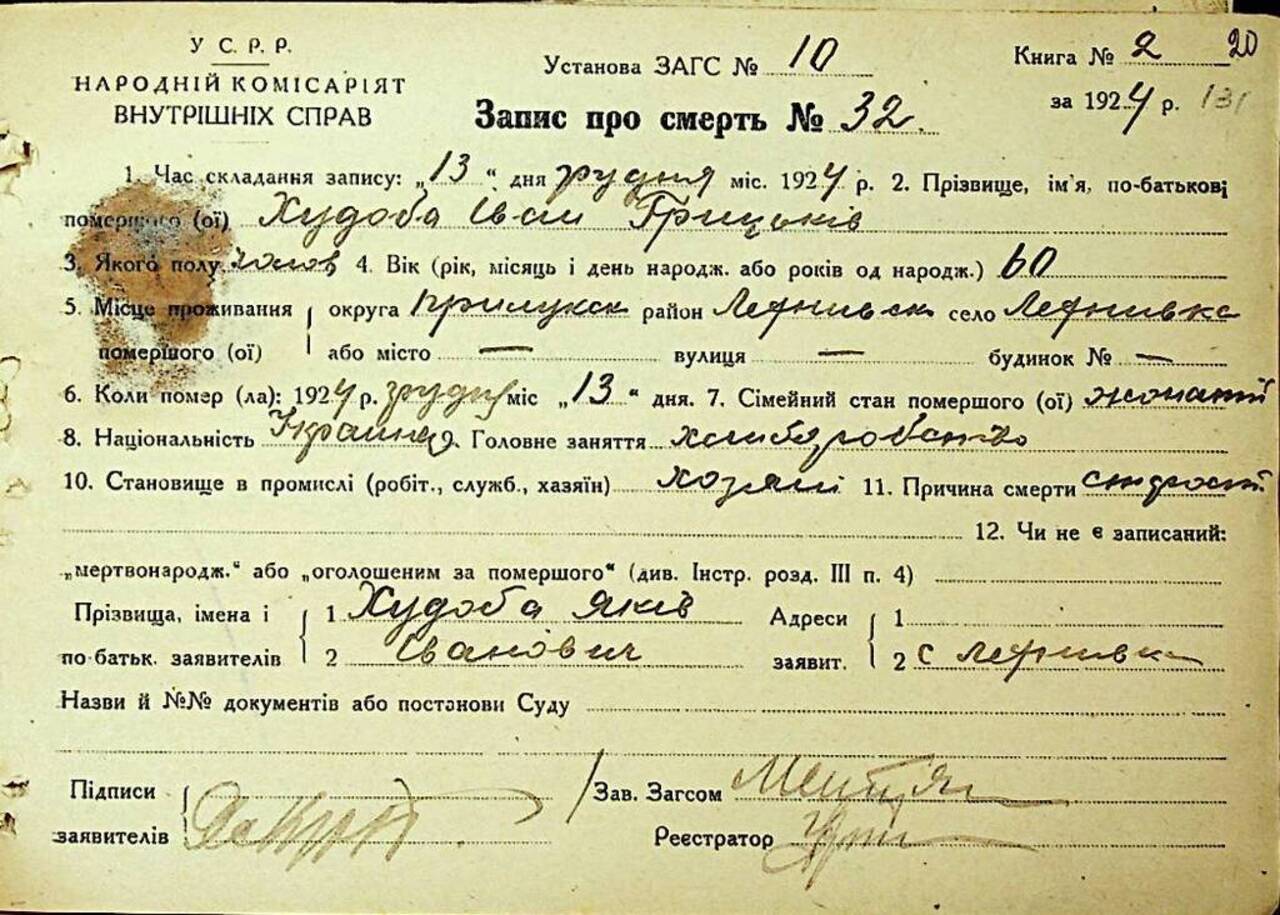 У С. Р. Р.
НАРОДНІЙ КОМІСАРІЯТ
ВНУТРІШНІХ СПРАВ
Установа ЗАГС № 10
Книга № 2 20
за 1924 р. 131
Запис про смерть № 32.
1. Час складання запису: „13“ дня грудня міс. 1924 р. 2. Прізвище, ім'я, по-батькові
помершого (ої) Худоба Іван Грицьків
3. Якого полу чолов 4. Вік (рік, місяць і день народж. або років од народж.) 60
5. Місце проживання округа Прилукск район село
помершого (ої) або місто — вулиця — будинок № —
6. Коли помер (ла): 1924 р. грудня міс „13“ дня. 7. Сімейний стан помершого (ої) жонатий
8. Національність Украинец 9. Головне заняття хліборобство
10. Становище в промислі (робіт., служб., хазяїн) хозяин 11. Причина смерти
12. Чи не є записаний:
„мертвонародж.“ або „оголошеним за помершого“ (див. Інстр. розд. III п. 4)
Прізвища, імена і 1 Худоба Яків Адреси 1
по-батьк. заявителів 2 Іванович заявит. 2 С
Назви й №№ документів або постанови Суду
Підписи
заявителів
Зав. Загсом
Реєстратор